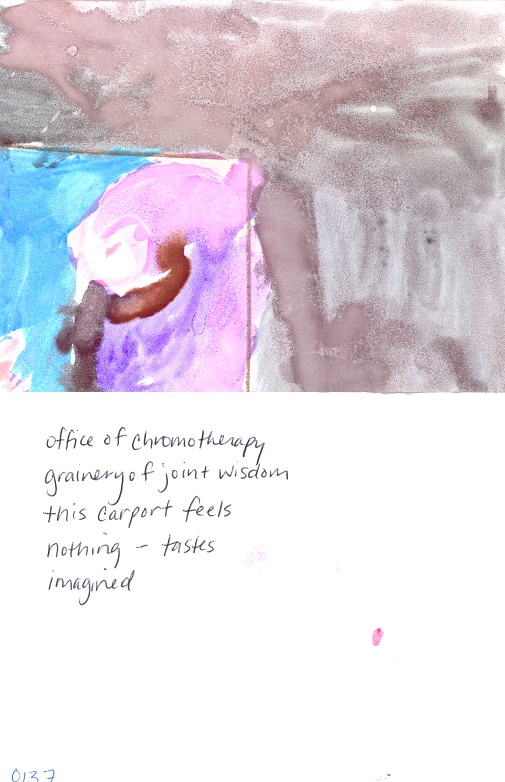 office of chromotherapy
grainery of joint wisdom
this carport feels
nothing – tastes
imagined
0137